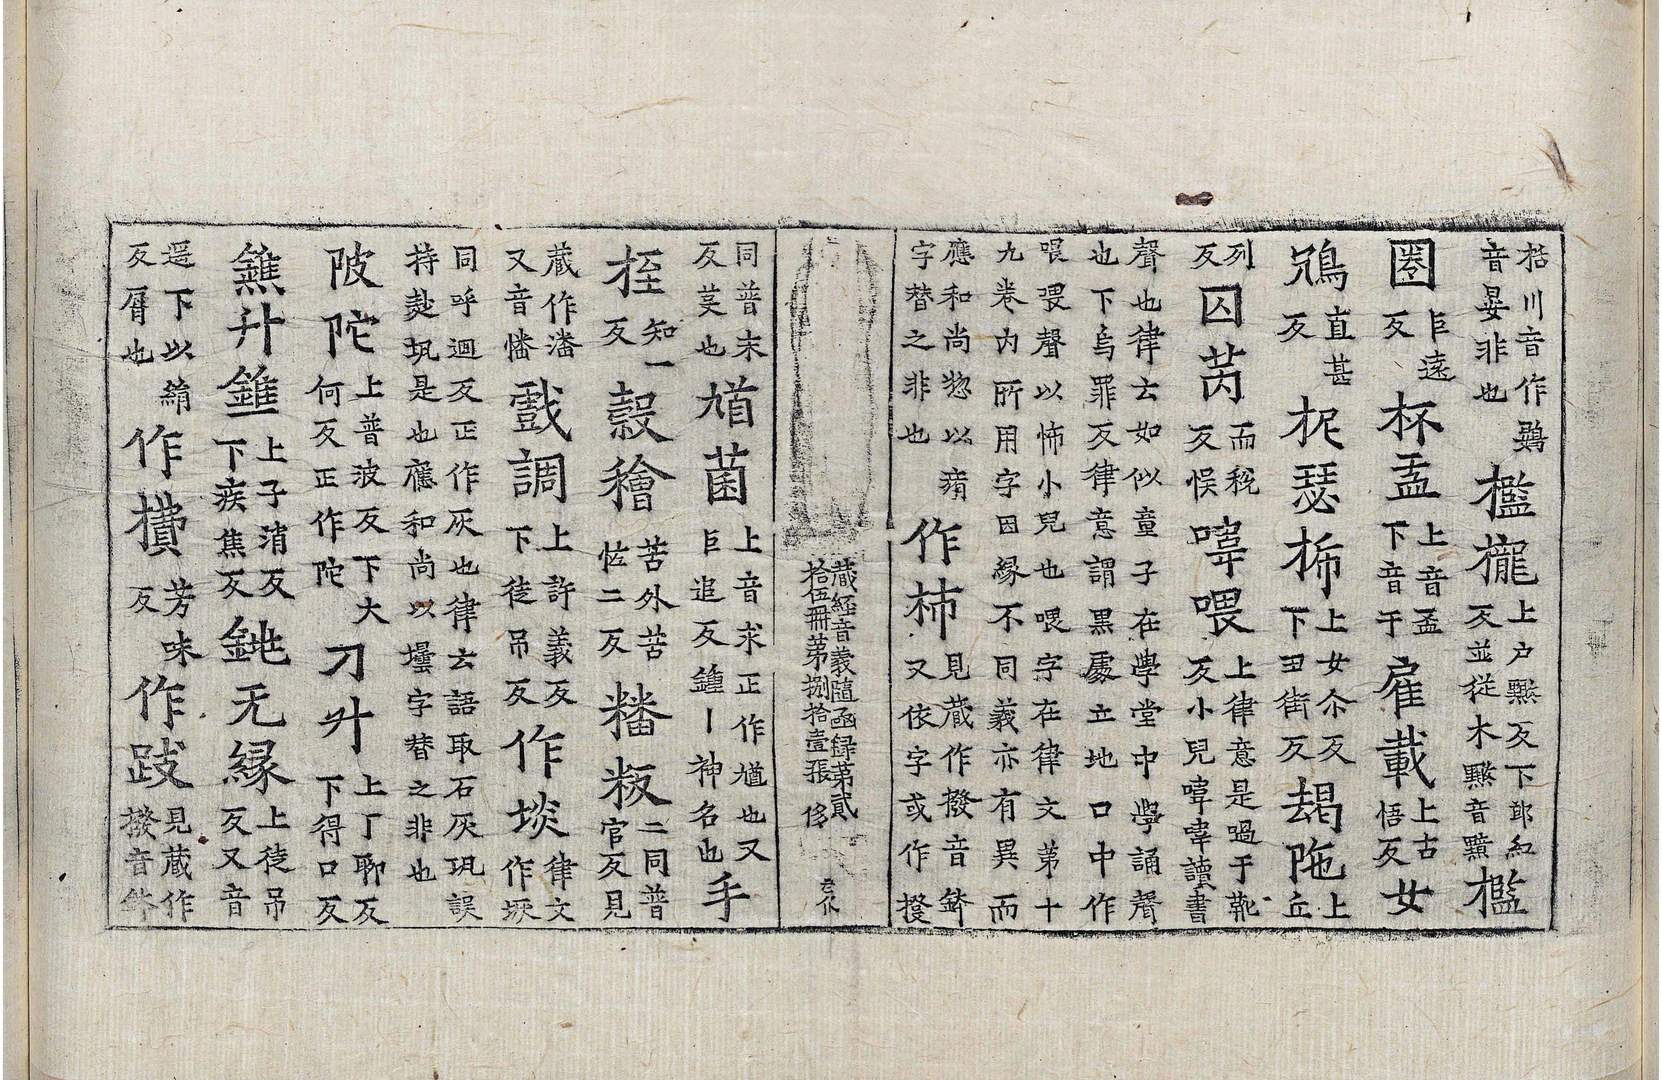 枯川音作鷄
音晏非也
檻櫳
上戶黤反下郎紅
反並從木黤音黯
檻
圈
臣遠
反
杯盂
上音盃
下音于
雇載
上古
悟反
女
鴆
直甚
反
柅瑟柨
上女尒反
下丑街反
朅陁
上
丘
列
反
囚芮
而稅
反悮
喡喂
上律意是過于靴
反小兒喡喡讀書
聲也律云如似童子在學堂中學誦聲
也下烏罪反律意謂黑處立地口中作
喂喂聲以怖小兒也喂字在律文第十
九卷內所用字因緣不同義亦有異而
應和尚惣以痏
字替之非也
作柹
見藏作撥音鉢
又依字或作撥
藏經音義隨函録第貳
拾伍冊第捌拾壹張 侈
同普末
反茇也
馗菌
上音求正作馗也又
臣追反鍾丨神名也
手
桎
知一
反
瑴穭
苦外苦
恠二反
䊩粄
二同普
官反見
藏作潘
又音幡
戲調
上許義反
下徒吊反
作埮
律文
作垯
同呼迴反正作灰也律云語取石灰䂓誤
持䟦䂓是也應和尚以壜字替之非也
陂陀
上普波反下大
何反正作陀
刀升
上丁聊反
下得口反
鐎升鑃
上子消反
下疾焦反
銚无緣
上徒吊
反又音
遥下以絹
反屑也
作攢
芳味
反
作跋
見藏作
撥音鉢